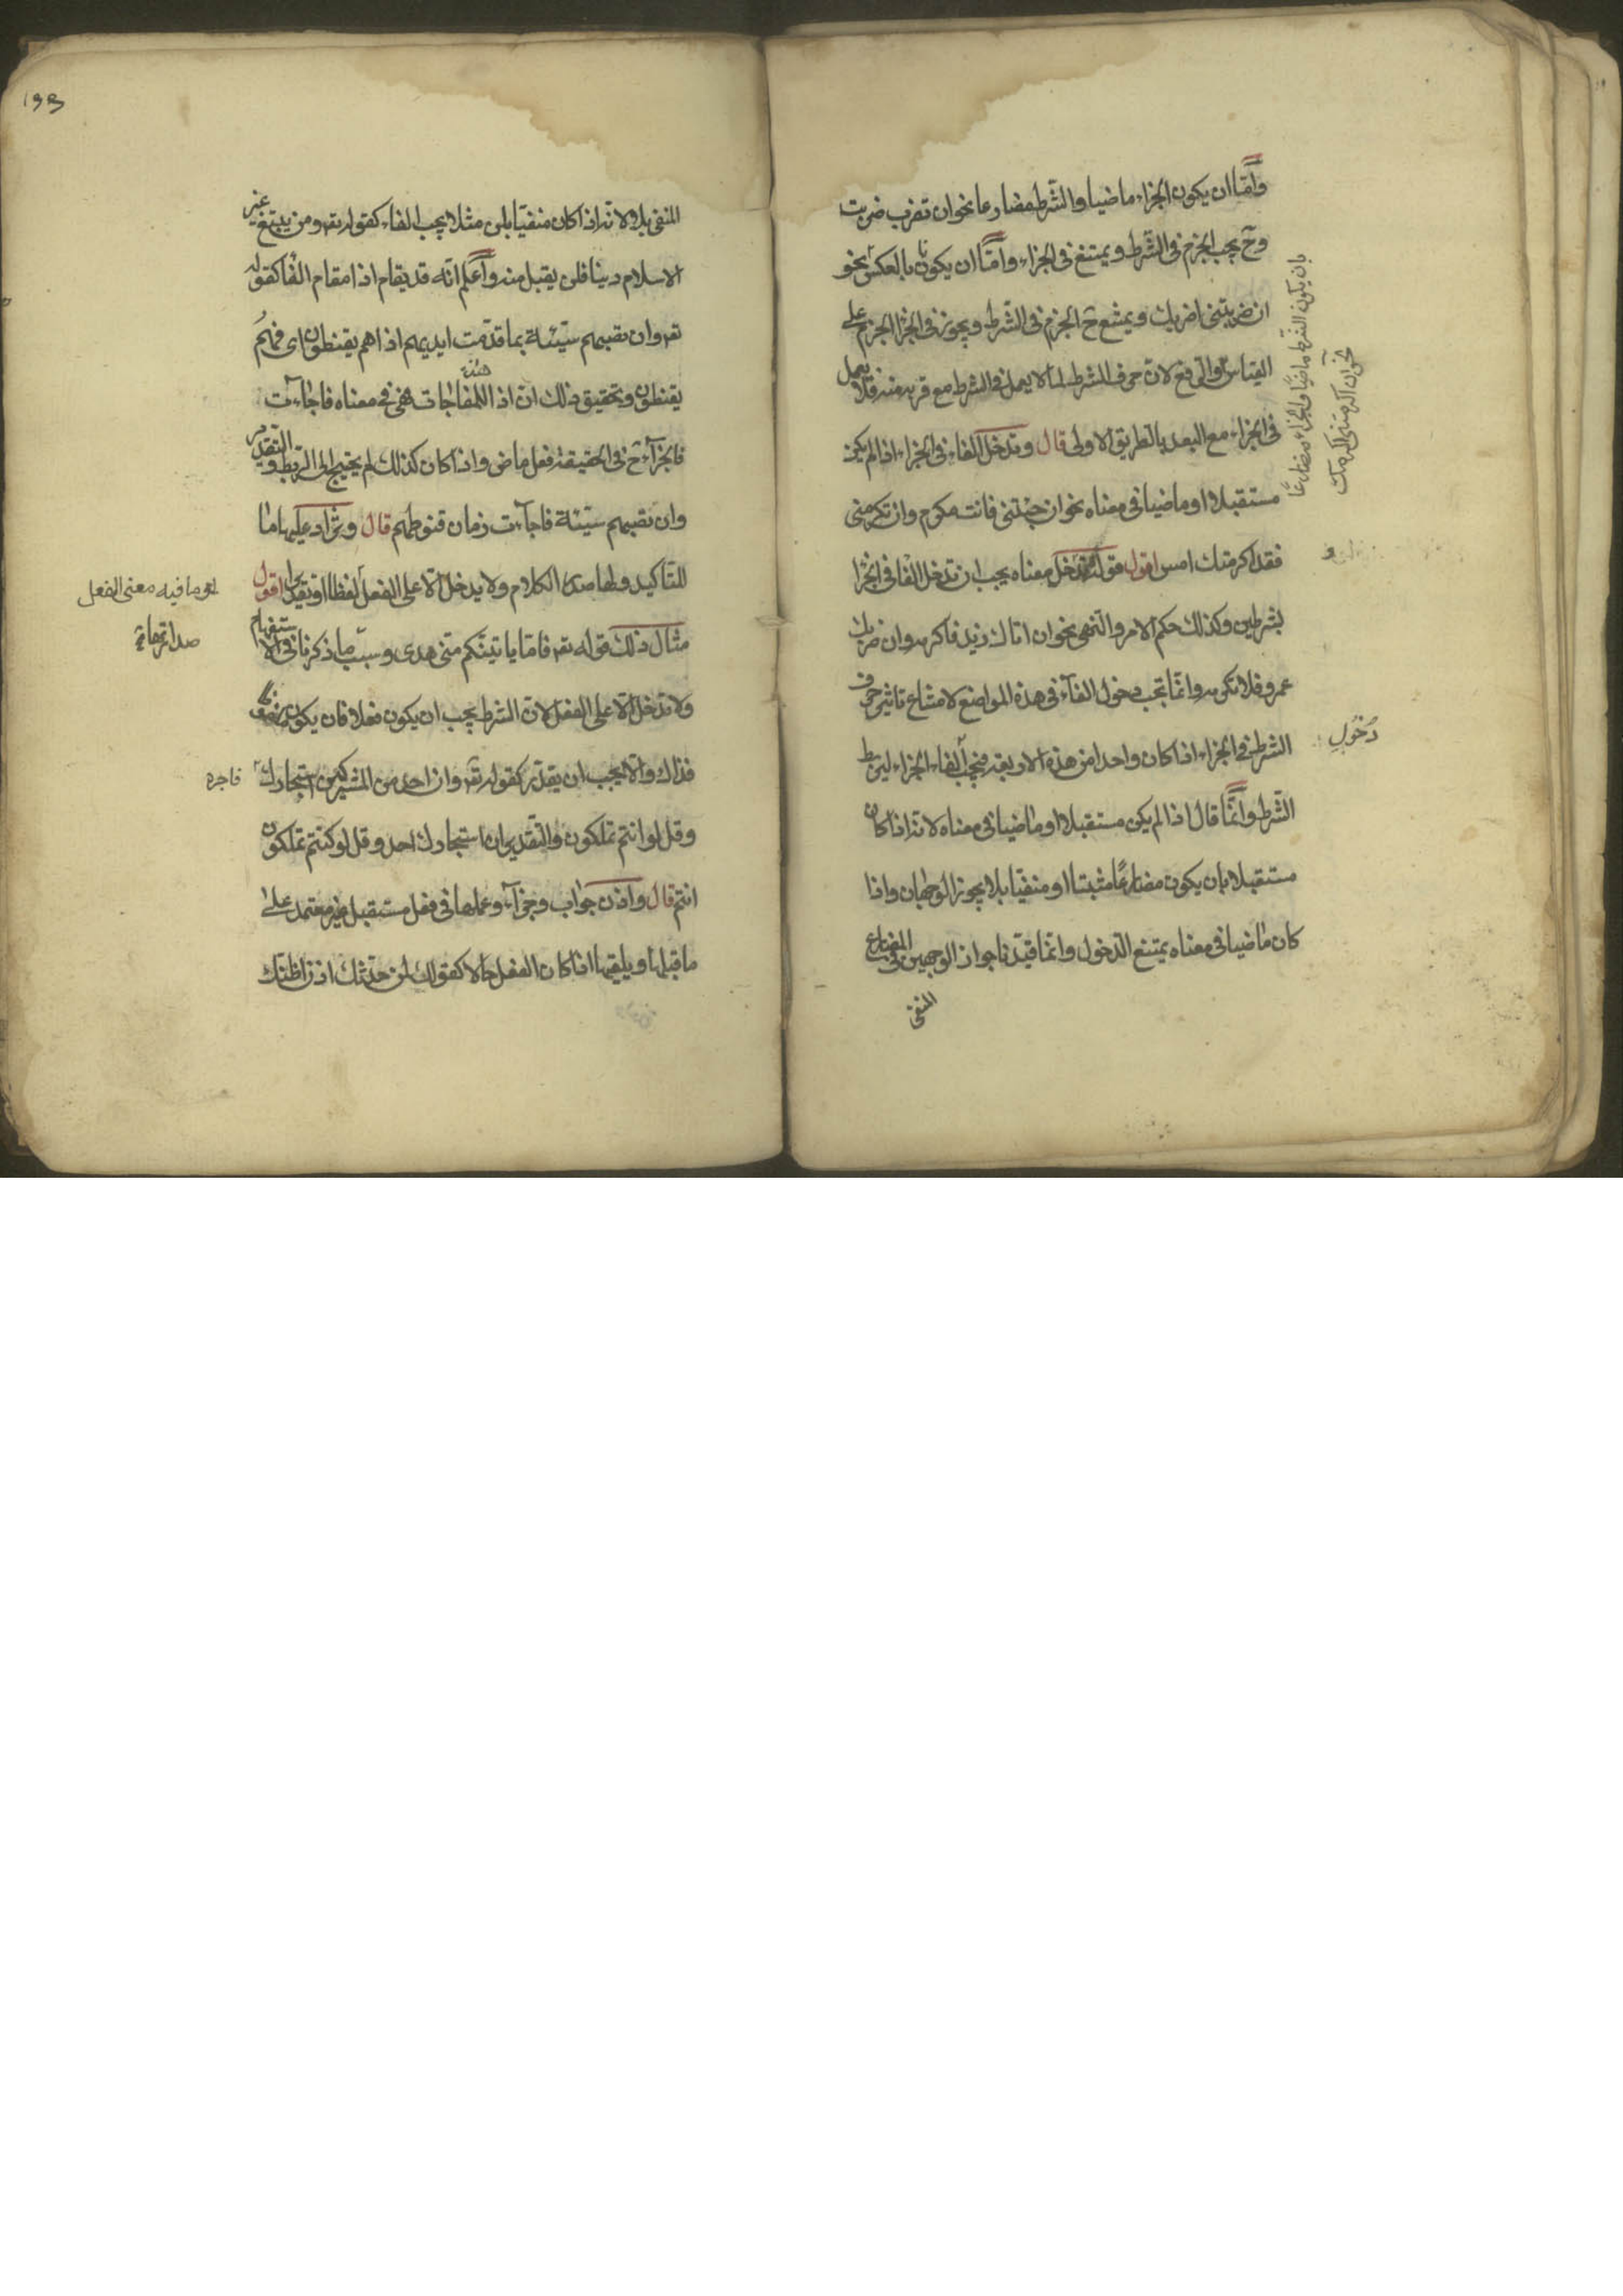 وامّا ان يكون الجزاء ماضيا والشّرط مضارعا نحو ان تضرب ضربت
وح يجب الجزم في الشّرط ويمتنع في الجزاء وامّا ان يكونا بالعكس نحو
ان ضربتني اضربك ويمتنع ح الجزم في الشّرط ويجوز في الجزا الجزم على
القياس والرفع لانّ حرف الشرط لما لا يعمل في الشرط مع قربه منه فلا يعمل
في الجزاء مع البعد بالطريق الاولى قال وتدخل الفاء في الجزاء اذا لم يكن
مستقبلا او ماضيا في معناه نحو ان جئتني فانت مكرم وان تكرمني
فقد اكرمتك امس اقول قوله تدخل معناه يجب ان تدخل الفا في الجزا
بشرطين وكذلك حكم الامر والنّهى نحو ان اتاك زيد فاكرمه وان ضربك
عمرو فلا تكرمه وانّما تجب دخول الفآء في هذه المواضع لامتناع تاثير حرف
الشرط في الجزاء اذا كان واحدا من هذه الاربعة فيجب الفاء الجزاء ليربط
الشّرط وانّما قال اذا لم يكن مستقبلا او ماضيا في معناه لانّه اذا كان
مستقبلا بان يكون مضارعًا مثبتا او منفيّا بلا يجوز الوجهان واذا
كان ماضيا في معناه يمتنع الدّخول وانّما قيّدنا جواز الوجهين في المضارع
المنفى
بان يكون الشرط ماضيًا والجزاء مضارعًا
نحو ان اكرمتنى اكرمك
دخول
١٩٣
المنفى بلا لانّه اذا كان منفيّا بلن مثلا يجب الفاء كقوله تعه ومن يبتغ غير
الاسلام دينا فلن يقبل منه واعلم انّه قد يقام اذا مقام الفا كقوله
تعه وان تصبهم سيّئة بما قدّمت ايديهم اذا هم يقنطون اى فهم
يقنطون وتحقيق ذلك ان اذا للمفاجات هى في معناه فاجاءت
فالجزآء ح في الحقيقة فعل ماض واذا كان كذلك لم يحتج الى الربط والتقدير
وان تصبهم سيّئة فاجآءت زمان قنوطهم قال وتزاد عليها ما
للتاكيد ولها صدر الكلام ولا يدخل الّا على الفعل لفظا او تقديرا اقول
مثال ذلك قوله تعه فامّا ياتينّكم منّى هدى وسبب ما ذكرنا في الاستفهام
ولا تدخل الّا على الفعل لانّ الشرط يجب ان يكون فعلا فان يكون
فذاك والّا يجب ان يقدّر كقوله تعه وان احد من المشركين استجارك
وقل لو انتم تملكون والتّقدير ان استجارك احد وقل لو كنتم تملكون
انتم قال واذن جواب وجزآء وعملها في فعل مستقبل غير معتمد على
ما قبلها ويلغيها اذا كان الفعل حالا كقولك لمن حدّثك اذن اظنّك
هو ما فيه معنى الفعل
فاجره